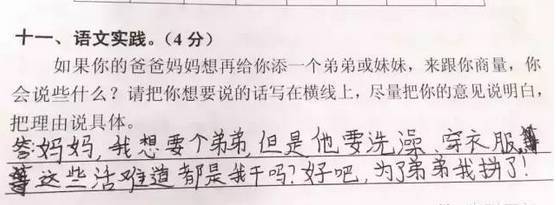 十一、语文实践。(4分)
如果你的爸爸妈妈想再给你添一个弟弟或妹妹，来跟你商量，你
会说些什么？请把你想要说的话写在横线上，尽量把你的意见说明白，
把理由说具体。
答妈妈，我想要个弟弟，但是他要洗澡、穿衣服等
等这些活难道都是我干吗？好吧，为了弟弟我拼了！